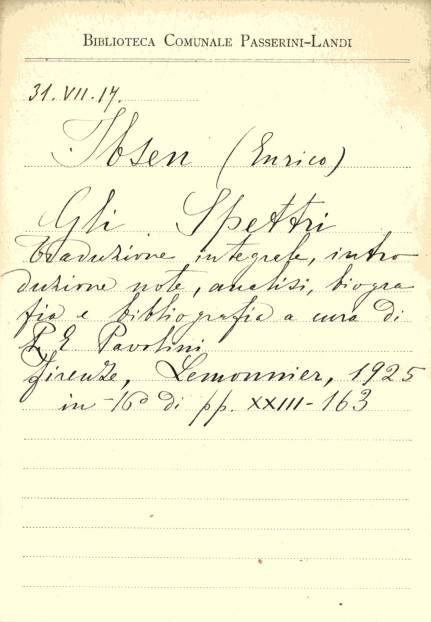 BIBLIOTECA COMUNALE PASSERINI-LANDI
31.VII.17.
Ibsen (Enrico)
Gli Spettri
Traduzione integrale, intro
duzione note, analisi, biogra
fia e bibliografia a cura di
P. E. Pavolini
Firenze, Lemonnier, 1925
in-16º di pp. XXIII-163